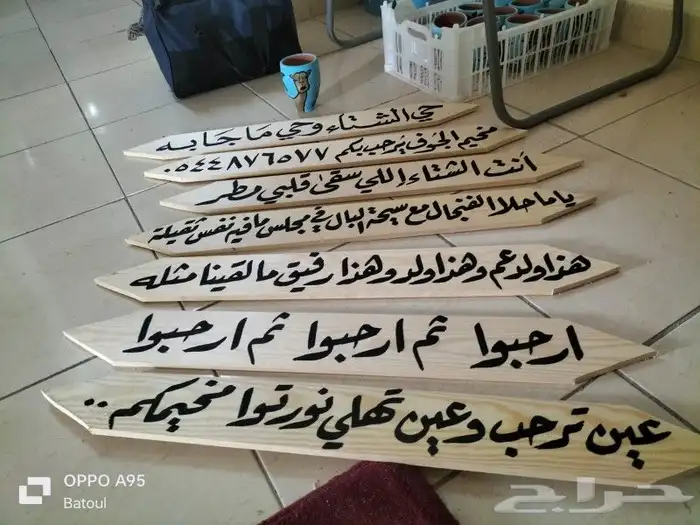 حي الشتاء وحي ما جا به
مخيم الجوف يرحب بكم ٠٥٤٤٨٧٦٥٧٧
أنت الشتاء اللي سقى قلبي مطر
يا ما حلا الفنجال مع سيحة البال في مجلس ما فيه نفس ثقيلة
هذا ولد عم وهذا ولد وهذا رفيق ما لقينا مثله
ارحبوا ثم ارحبوا ثم ارحبوا
عين ترحب وعين تهلي نورتوا مخيمكم ..
OPPO A95
Batoul
حراج